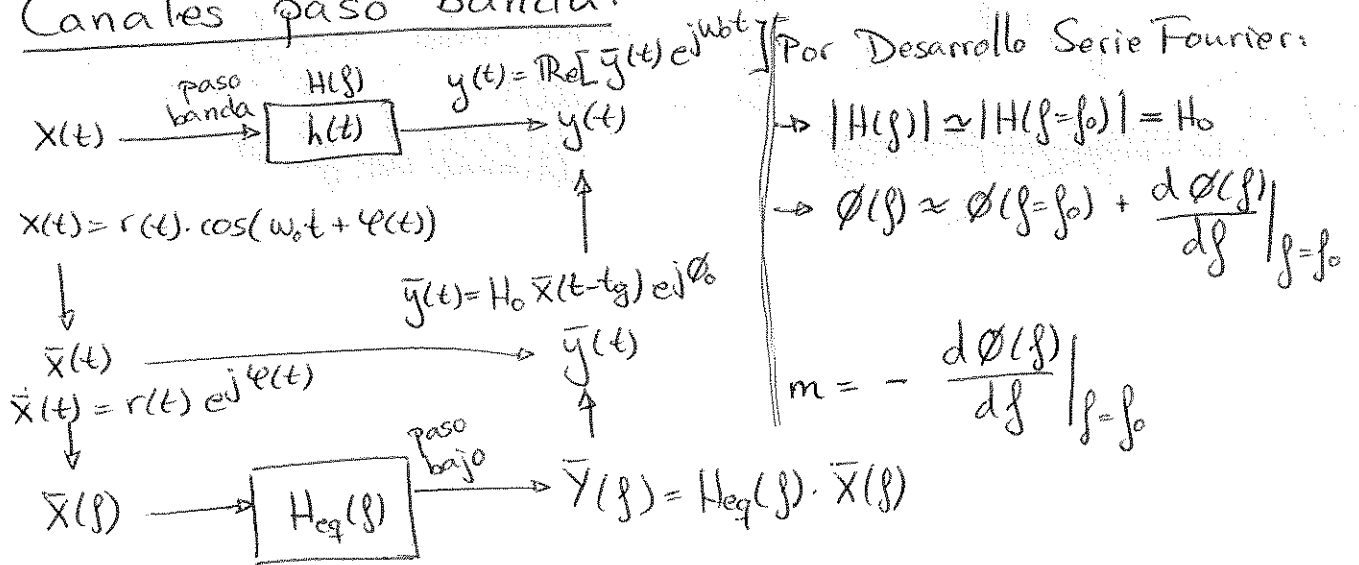 Canales paso banda:
paso banda H(f) y(t) = Re[ȳ(t) e^{jω₀t}]
x(t) → h(t) → y(t)
x(t) = r(t). cos(ω₀t + φ(t))
ȳ(t) = H₀ x̄(t-tg) e^{jØ₀}
x̄(t) → ȳ(t)
x̄(t) = r(t) e^{jφ(t)}
paso bajo
X̄(f) → Heq(f) → Ȳ(f) = Heq(f). X̄(f)
Por Desarrollo Serie Fourier:
→ |H(f)| ≃ |H(f=f₀)| = H₀
→ Ø(f) ≈ Ø(f=f₀) + dØ(f)/df |f=f₀
m = - dØ(f)/df |f=f₀